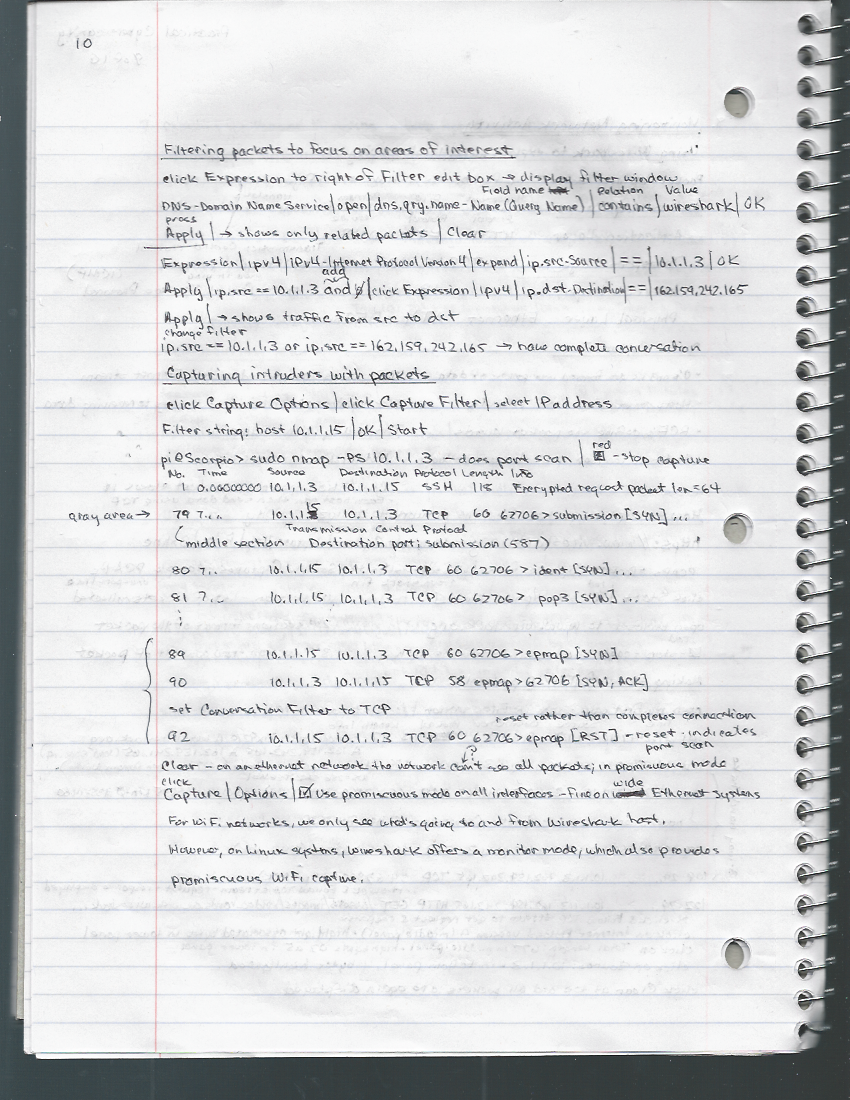 10
Filtering packets to focus on areas of interest
click Expression to right of Filter edit box → display filter window
Field name Relation Value
DNS-Domain Name Service|open|dns.qry.name-Name (Query Name)|contains|wireshark|OK
press
Apply|→ shows only related packets|Clear
Expression|ipv4|IPv4-Internet Protocol Version 4|expand|ip.src-Source|==|10.1.1.3|OK
add
Apply|ip.src == 10.1.1.3 and|click Expression|ipv4|ip.dst-Destination|==|162.159.242.165
Apply|→ shows traffic from src to dst
change filter
ip.src == 10.1.1.3 or ip.src == 162.159.242.165 → have complete conversation
Capturing intruders with packets
click Capture Options|click Capture Filter|select IP address
Filter string: host 10.1.1.15|OK|Start
red
pi@Scorpio> sudo nmap -PS 10.1.1.3 - does port scan | -stop capture
No. Time Source Destination Protocol Length Info
1 0.00000000 10.1.1.3 10.1.1.15 SSH 118 Encrypted request packet len=64
gray area → 79 7... 10.1.1.15 10.1.1.3 TCP 60 62706>submission [SYN] ...
Transmission Control Protocol
middle section Destination port: submission (587)
80 7... 10.1.1.15 10.1.1.3 TCP 60 62706 > ident [SYN] ...
81 7... 10.1.1.15 10.1.1.3 TCP 60 62706 > pop3 [SYN] ...
⋮
89 10.1.1.15 10.1.1.3 TCP 60 62706 > epmap [SYN]
90 10.1.1.3 10.1.1.15 TCP 58 epmap > 62706 [SYN, ACK]
set Conversation Filter to TCP
reset rather than completes connection
92 10.1.1.15 10.1.1.3 TCP 60 62706 > epmap [RST] - reset - indicates
port scan
?
Clear - on an ethernet network the network can't see all packets; in promiscuous mode
click wide
Capture|Options|☑ Use promiscuous mode on all interfaces - fine on Ethernet systems
For WiFi networks, we only see what's going to and from Wireshark host.
However, on Linux systems, wireshark offers a monitor mode, which also provides
promiscuous WiFi capture.